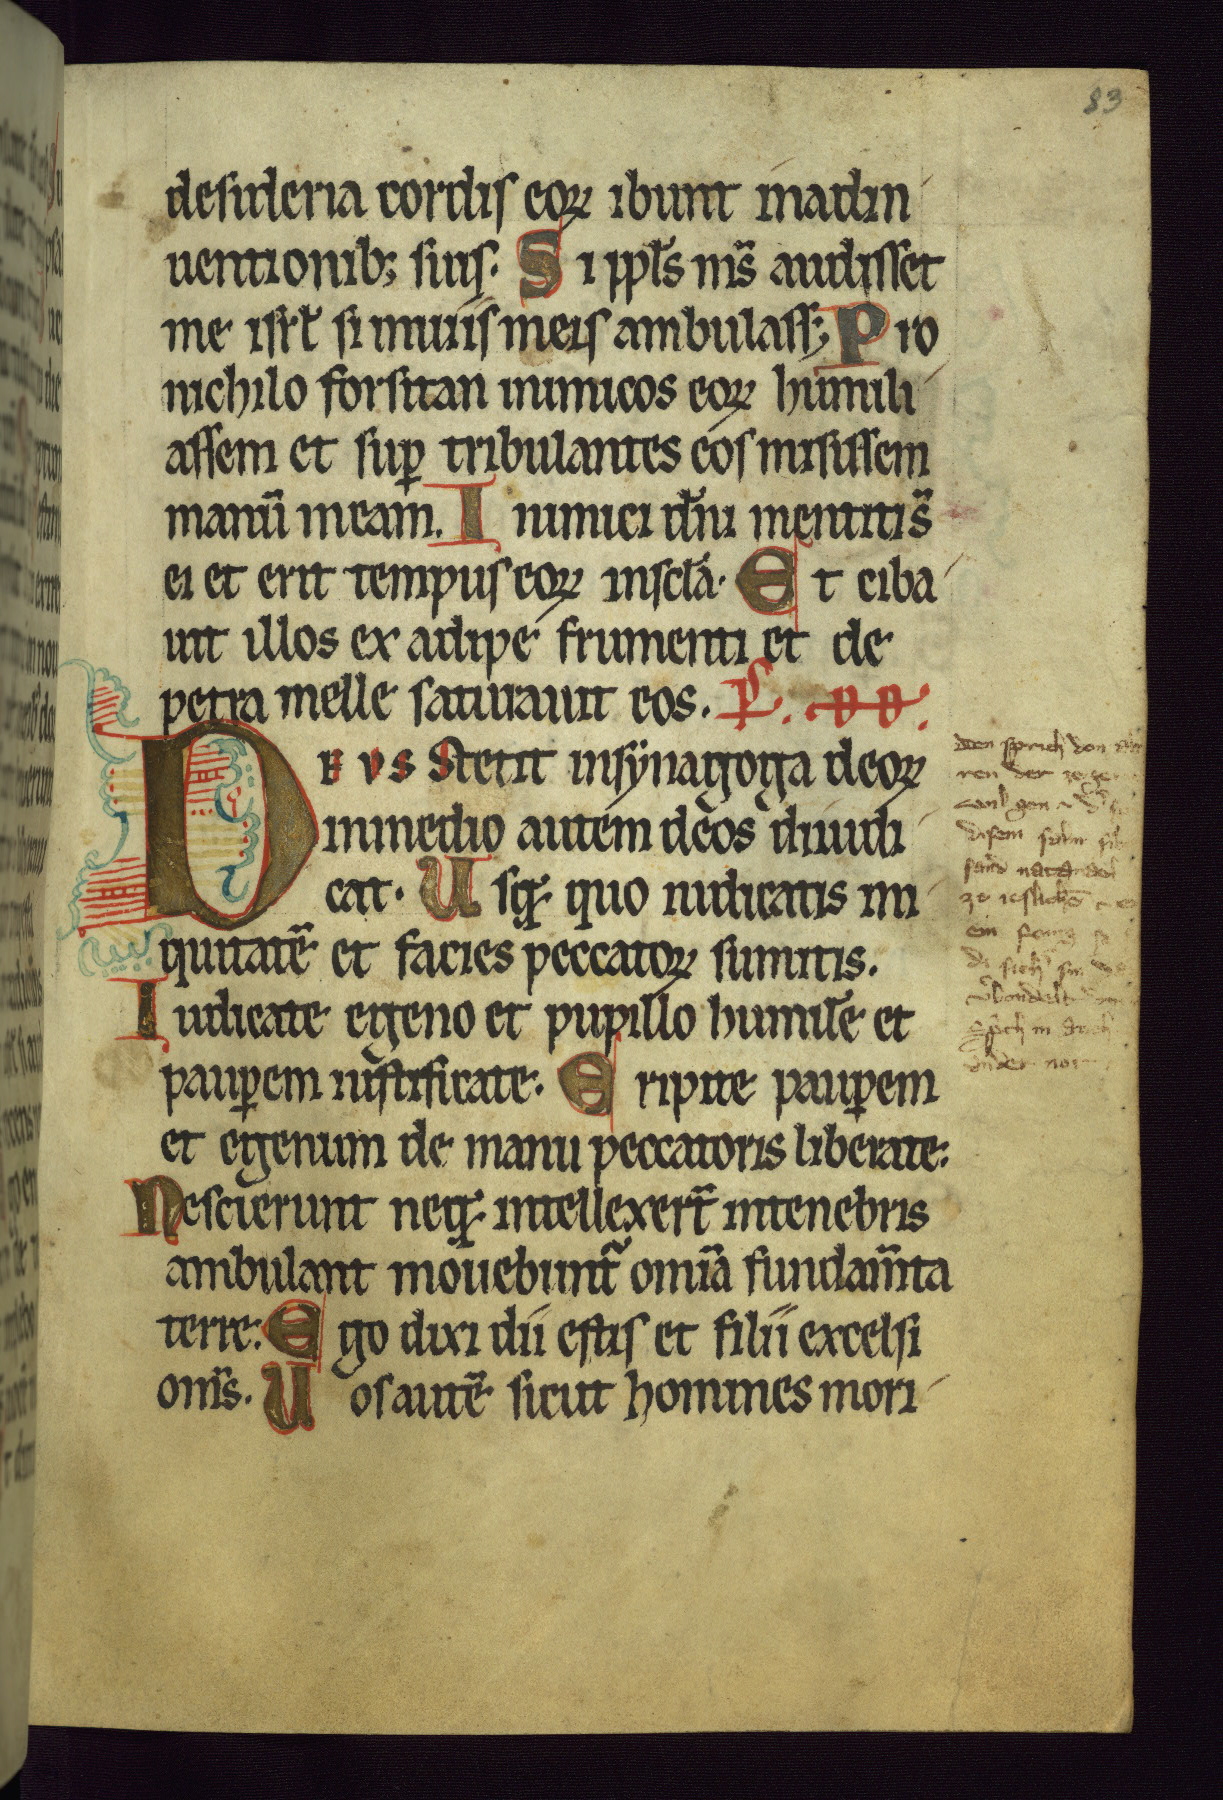 83
desideria cordis eoꝝ ibunt in adin
uentionib; suis. Si ppl̄s m̄s audisset
me isrl̄ si in uiis meis ambulass; Pro
nichilo forsitan inimicos eoꝝ humili
assem et suꝑ tribulantes eos misissem
manū meam. Inimici dn̄i mentiti s̄
ei et erit tempus eoꝝ in scl̄a. Et ciba
uit illos ex adipe frumenti et de
petra melle saturauit eos. ps. DD.
Deus stetit in synagoga deoꝝ
in medio autem deos diiudi
cat. Usq; quo iudicatis ini
quitatē et facies peccatoꝝ sumitis.
Iudicate egeno et pupillo humilē et
pauꝑem iustificate. Eripite pauꝑem
et egenum de manu peccatoris liberate.
Nescierunt neq; intellexert̄ in tenebris
ambulant mouebunt̃ om̄ia fundam̄ta
terre. Ego dixi dii estis et filii excelsi
om̄s. Uos autē sicut homines mori